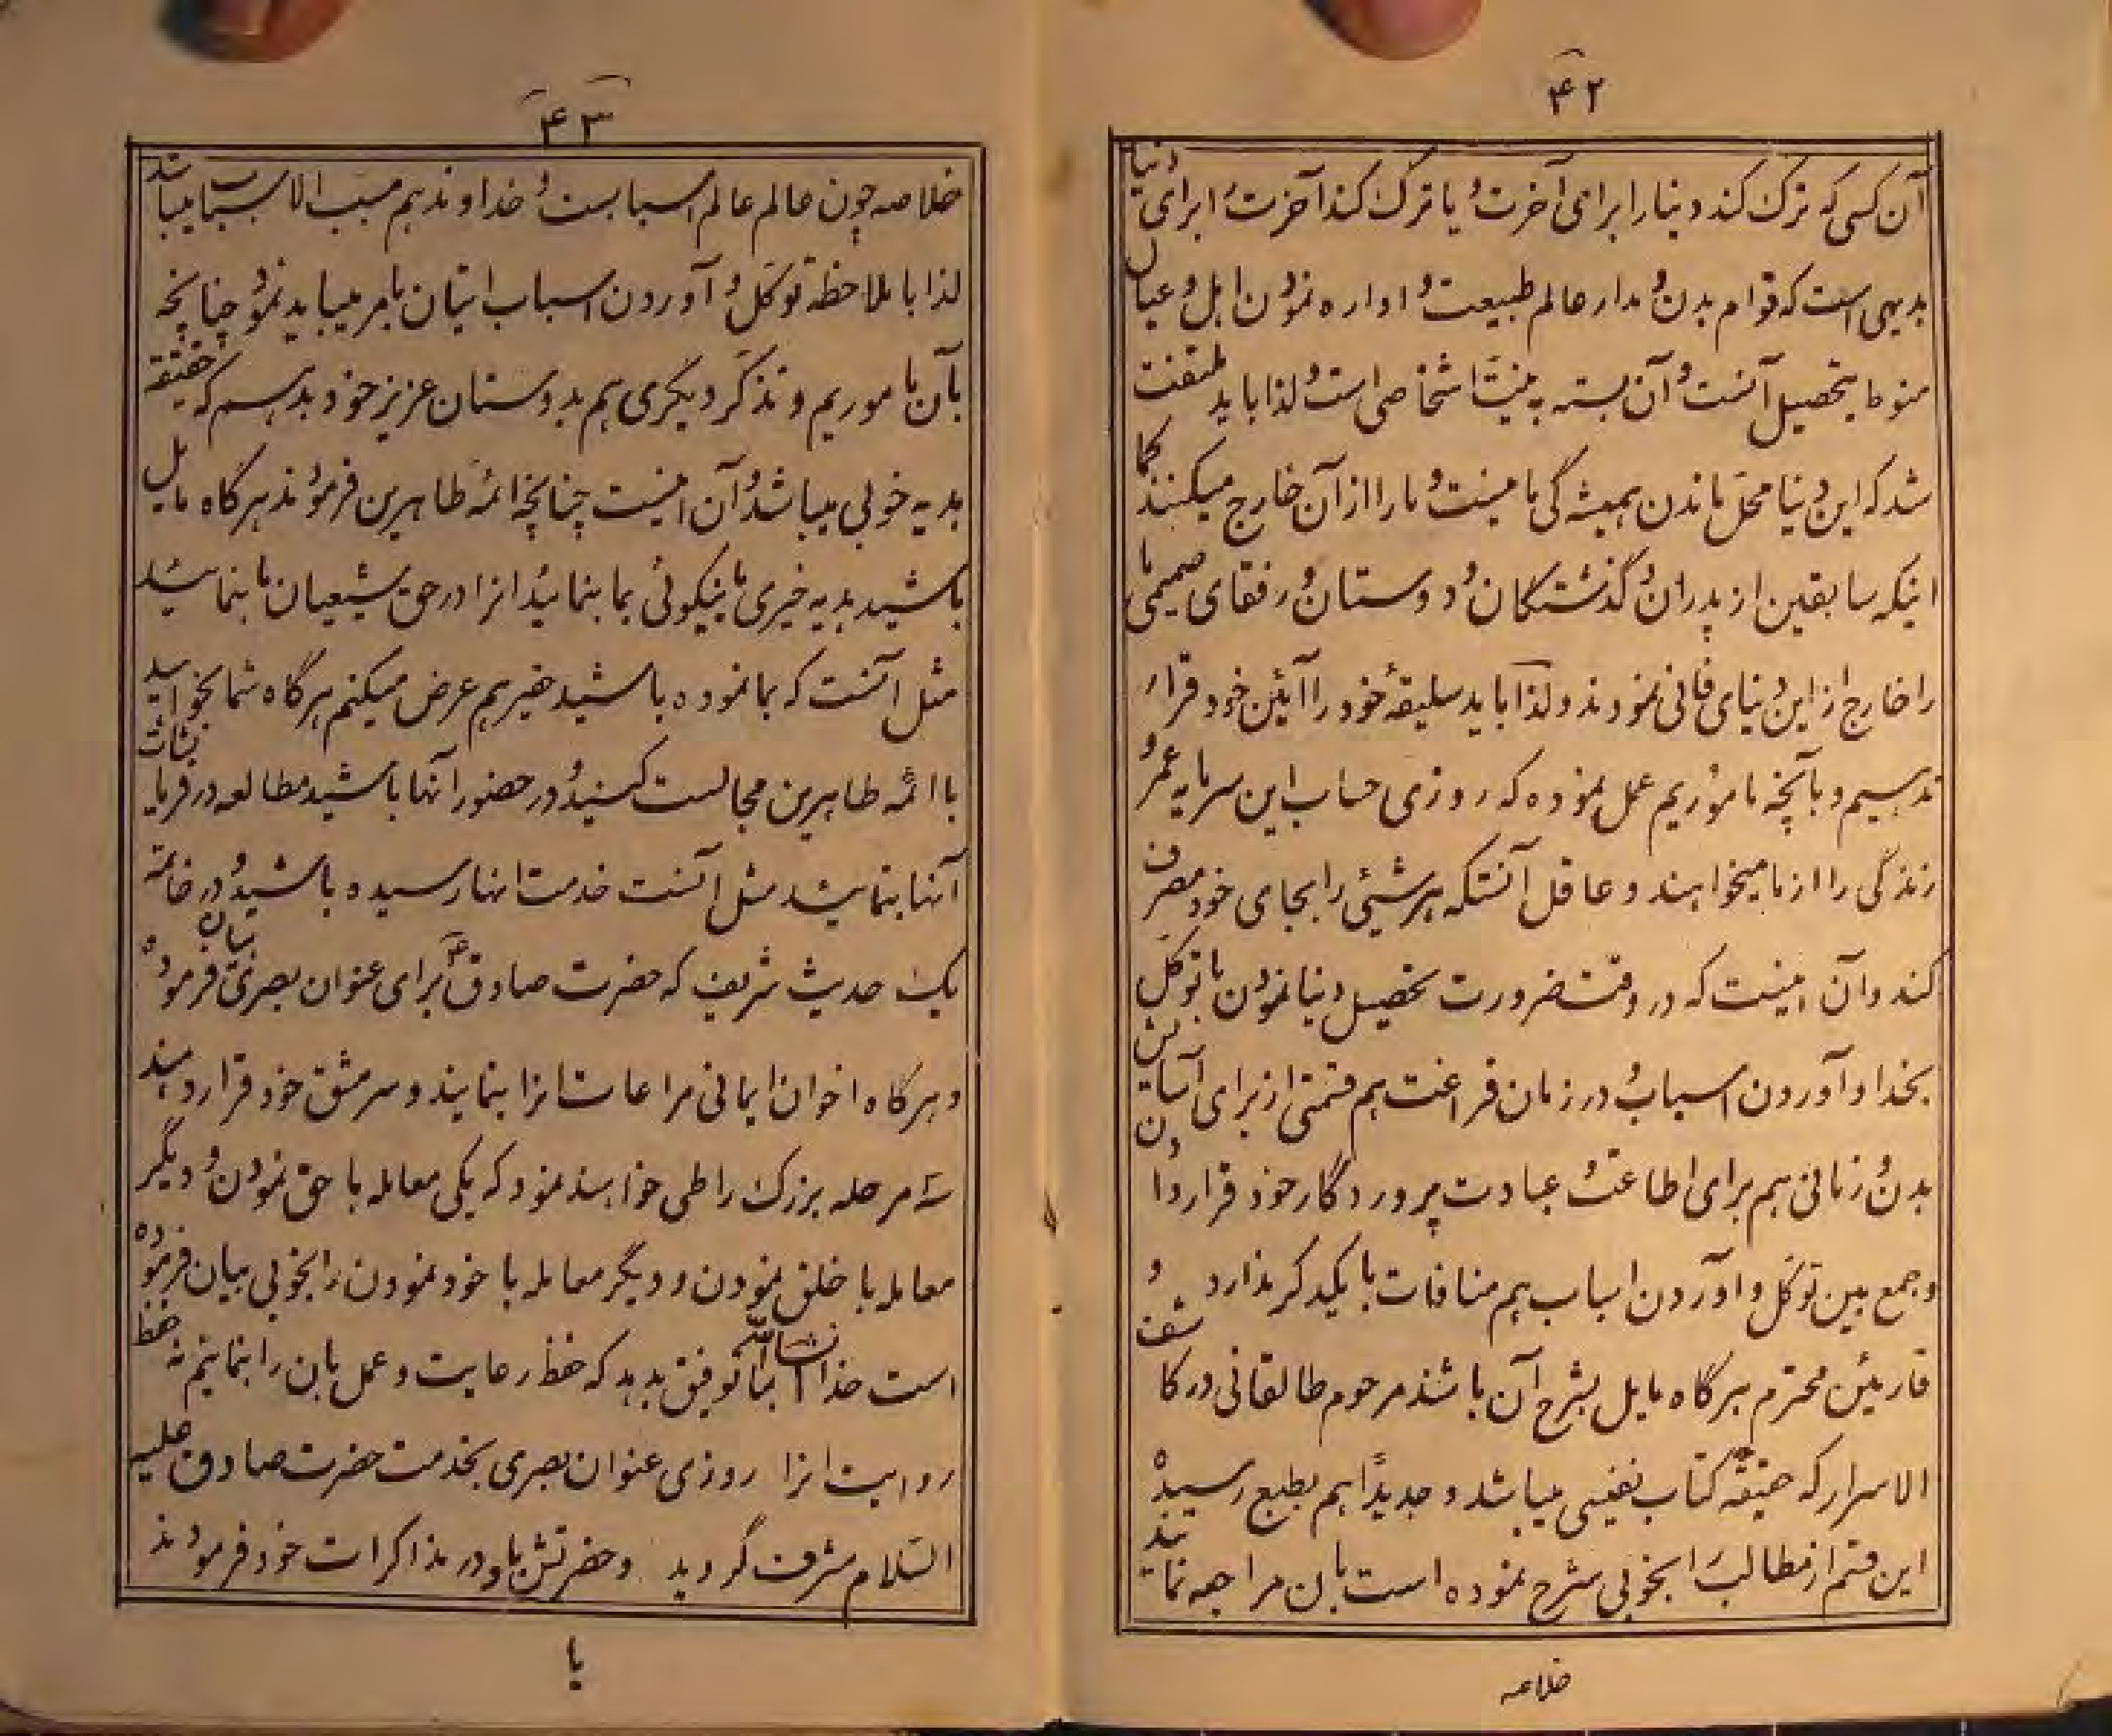 ۴۲
آن کسی که ترک کند دنیا را برای آخرت و یا ترک کند آخرت را برای دنیا
بدیهی است که قوام بدن و مدار عالم طبیعت و اداره نمودن اهل و عیال
منوط بتحصیل آنست و آن بسته به نیت اشخاص است و لذا باید ملتفت
شد که این دنیا محل ماندن همیشه گی ما نیست و ما را از آن خارج میکنند کما
اینکه سابقین از پدران و گذشتگان و دوستان و رفقای صمیمی ما
را خارج از این دنیای فانی نمودند و لذا باید سلیقهٔ خود را آئین خود قرار
ندهیم و بآنچه ماموریم عمل نموده که روزی حساب این سرمایه عمر و
زندگی را از ما میخواهند و عاقل آنستکه هر شیئی را بجای خود مصرف
کند و آن اینست که در وقت ضرورت تحصیل دنیا نمودن با توکل
بخدا و آوردن اسباب و در زمان فراغت هم قسمتی از برای آسایش
بدن و زمانی هم برای اطاعت و عبادت پروردگار خود قرار دادن
و جمع بین توکل و آوردن اسباب هم منافات با یکدیگر ندارد و
قارئین محترم هر گاه مایل بشرح آن باشند مرحوم طالقانی در کاشف
الاسرار که حقیقة کتاب نفیسی میباشد و جدیداً هم بطبع رسیده
این قسم از مطالب را بخوبی شرح نموده است بان مراجعه نمایند
خلاصه
۴۳
خلاصه چون عالم عالم اسبابست و خداوند هم مسبب الاسباب میباشد
لذا با ملاحظه توکل و آوردن اسباب اتیان بامر میباید نمود چنانچه
بآن ماموریم و تذکر دیگری هم بدوستان عزیز خود بدهم که حقیقة
هدیه خوبی میباشد و آن اینست چنانچه ائمه طاهرین فرمودند هر گاه مایل
باشید هدیه خیری یا نیکوئی بما بنمائید انرا در حق شیعیان ما بنمائید
مثل آنست که بما نموده باشید حقیر هم عرض میکنم هر گاه شما بخواهید
با ائمه طاهرین مجالست کنید و در حضور آنها باشید مطالعه در فرمایشات
آنها بنمائید مثل آنست خدمت انها رسیده باشید و در خاتمه
یک حدیث شریف که حضرت صادق ع برای عنوان بصری بیان فرموده
و هر گاه اخوان ایمانی مراعات انرا بنمایند و سر مشق خود قرار دهند
سه مرحله بزرگ را طی خواهند نمود که یکی معامله با حق نمودن و دیگر
معامله با خلق نمودن و دیگر معامله با خود نمودن را بخوبی بیان فرموده
است خدا انشاءالله بما توفیق بدهد که حفظ رعایت و عمل بان را بنمائیم نه حفظ
روایت انرا روزی عنوان بصری بخدمت حضرت صادق علیه
السلام مشرف گردید و حضرتش باو در مذاکرات خود فرمودند
یا